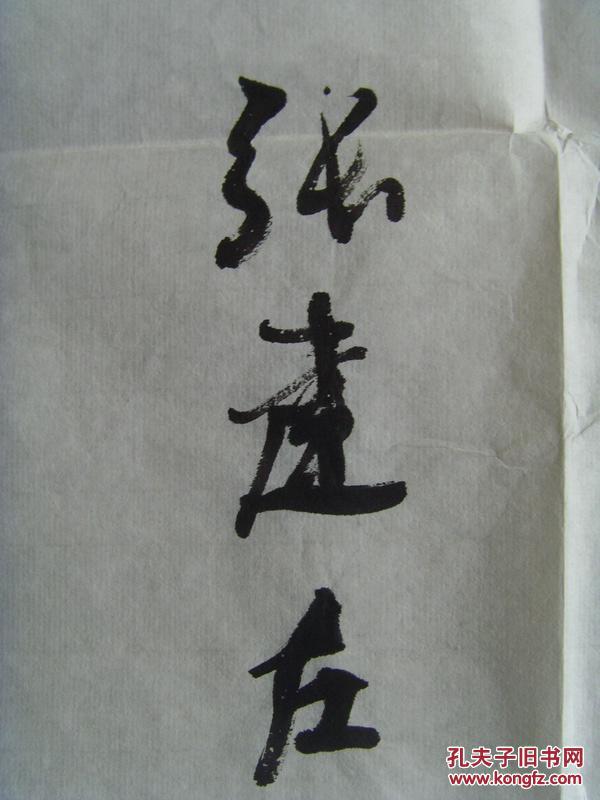 张虚左
孔夫子旧书网
www.kongfz.com